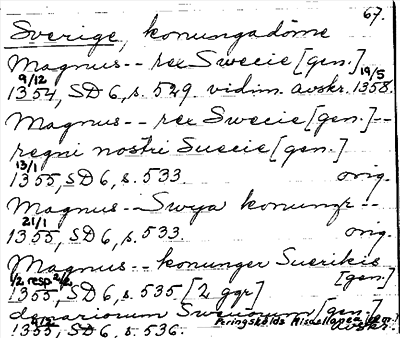 67.
Sverige, konungadöme
Magnus -- rex Swecie [gen.]
9/12 19/5
1354, SD 6, s. 529. vidim. avskr. 1358.
Magnus -- rex Swecie [gen.] --
regni nostri Suecie [gen.]
13/1
1355, SD 6, s. 533. orig.
Magnus -- Swya konungr --
21/1
1355, SD 6, s. 533. orig.
Magnus -- konunger Suerikis
[gen.]
1/2 resp. 2/2
1355, SD 6, s. 535. [2 ggr]
denariorum Swenorum [gen.]
Peringskiölds Miscellanea
1355, SD 6, s. 536.